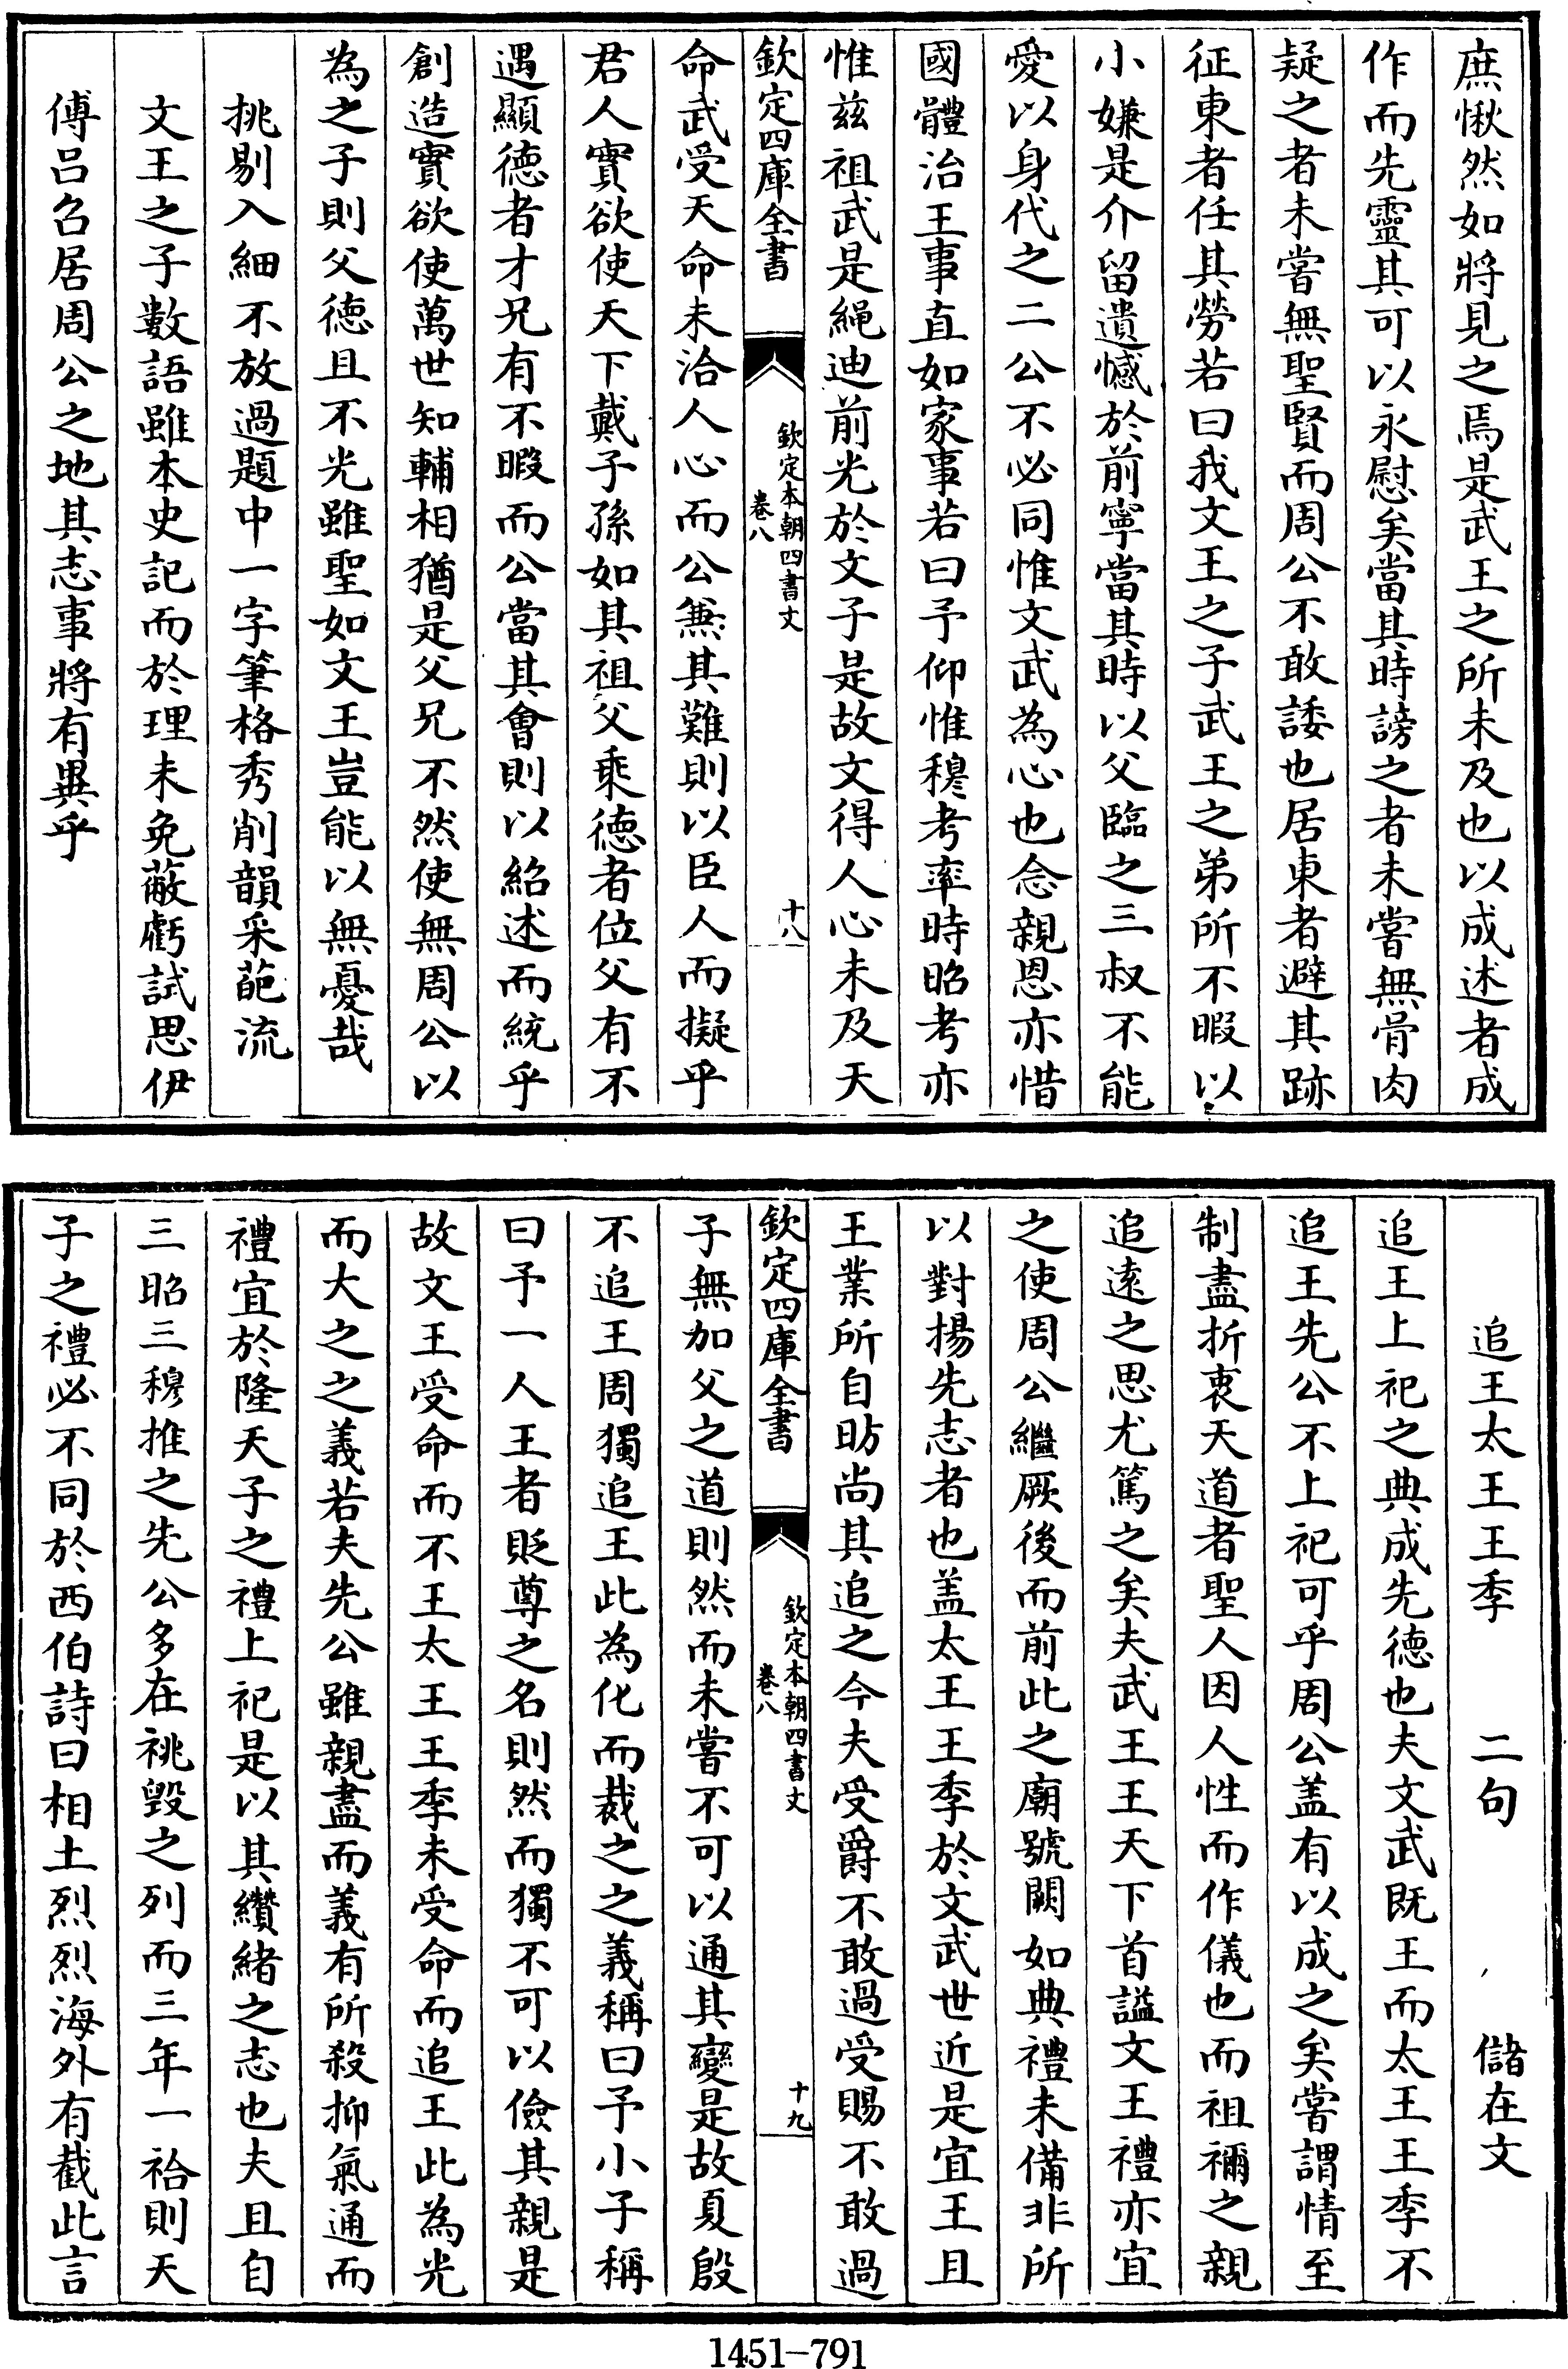 庶愀然如將見之焉是武王之所未及也以成述者成
作而先靈其可以永慰矣當其時謗之者未嘗無骨肉
疑之者未嘗無聖賢而周公不敢諉也居東者避其跡
征東者任其勞若曰我文王之子武王之弟所不暇以
小嫌是介留遺憾於前寧當其時以父臨之三叔不能
愛以身代之二公不必同惟文武為心也念親恩亦惜
國體治王事直如家事若曰予仰惟穆考率時昭考亦
惟兹祖武是繩迪前光於文子是故文得人心未及天
欽定四庫全書
欽定本朝四書文
卷八
十八
命武受天命未洽人心而公兼其難則以臣人而擬乎
君人實欲使天下戴子孫如其祖父乘德者位父有不
遇顯德者才兄有不暇而公當其會則以紹述而統乎
創造實欲使萬世知輔相猶是父兄不然使無周公以
為之子則父德且不光雖聖如文王豈能以無憂哉
挑剔入細不放過題中一字筆格秀削韻采葩流
文王之子數語雖本史記而於理未免蔽虧試思伊
傅呂召居周公之地其志事將有異乎
追王太王王季 二句 儲在文
追王上祀之典成先德也夫文武既王而太王王季不
追王先公不上祀可乎周公盖有以成之矣嘗謂情至
制盡折衷天道者聖人因人性而作儀也而祖禰之親
追遠之思尤篤之矣夫武王王天下首謚文王禮亦宜
之使周公繼厥後而前此之廟號闕如典禮未備非所
以對揚先志者也盖太王王季於文武世近是宜王且
王業所自昉尚其追之今夫受爵不敢過受賜不敢過
欽定四庫全書
欽定本朝四書文
卷八
十九
子無加父之道則然而未嘗不可以通其變是故夏殷
不追王周獨追王此為化而裁之之義稱曰予小子稱
曰予一人王者貶尊之名則然而獨不可以儉其親是
故文王受命而不王太王王季未受命而追王此為光
而大之之義若夫先公雖親盡而義有所殺抑氣通而
禮宜於隆天子之禮上祀是以其纘緒之志也夫且自
三昭三穆推之先公多在祧毀之列而三年一祫則天
子之禮必不同於西伯詩曰相土烈烈海外有截此言
1451-791